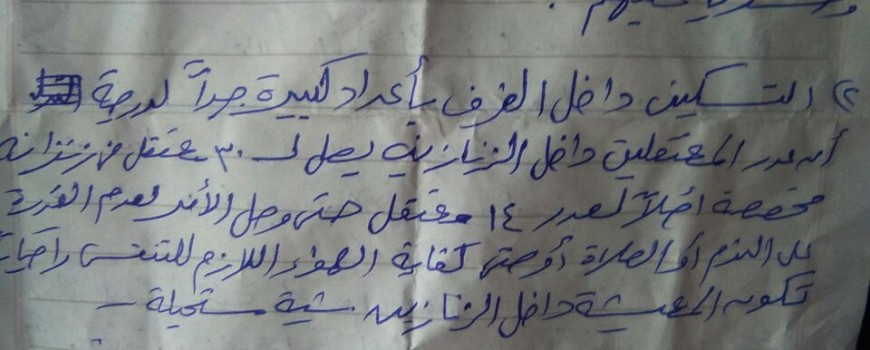 ٢) التسكين داخل الغرف بأعداد كبيرة جداً لدرجة
أن عدد المعتقلين داخل الزنازين يصل لـ ٣٠ معتقل في زنزانة
مخصصة أصلاً لعدد ١٤ معتقل حتى وصل الأمر لعدم القدرة
على النوم أو الصلاة أو حتى كفاية الهواء اللازم للتنفس وأحياناً
تكون المعيشة داخل الزنازين شبة مستحيلة –